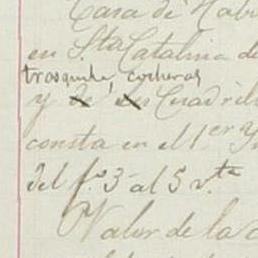 Casa de Habi
en Sta Catalina de
trasquila, cocheras
y de los Cuadril
consta en el 1er
del fs. 3 al 5 vta
Valor de la